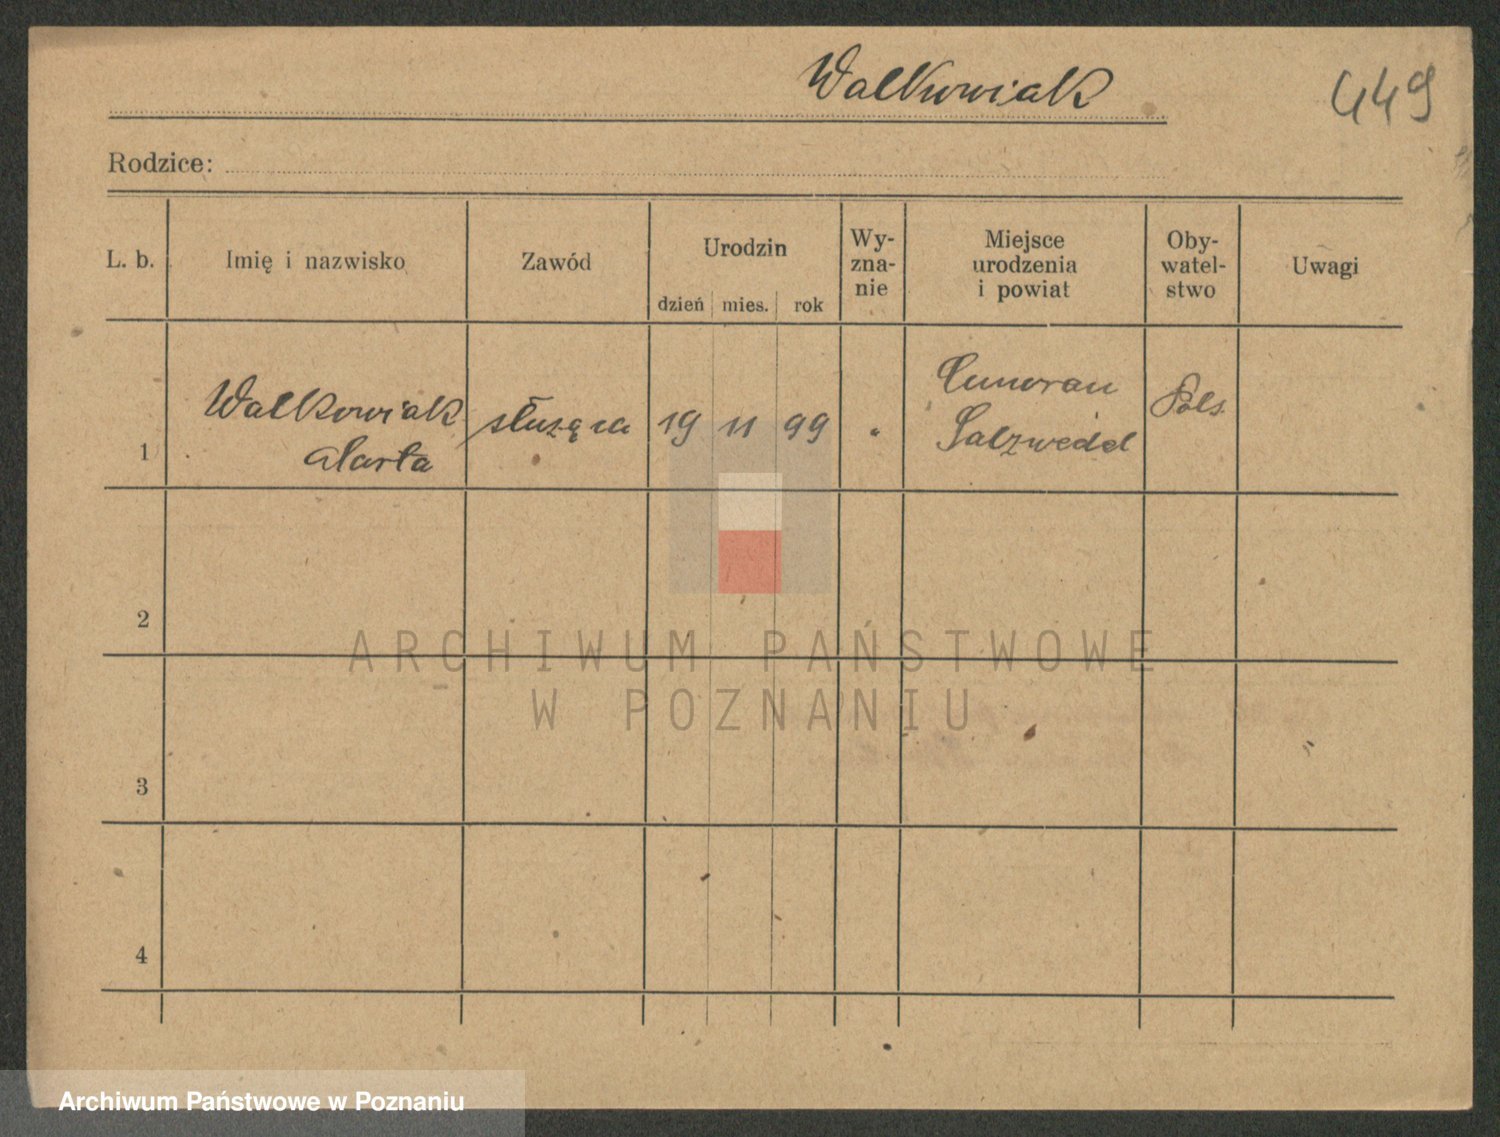 Walkowiak
449
Rodzice:
L. b.
Imię i nazwisko
Zawód
Urodzin
dzień
mies.
rok
Wy-
zna-
nie
Miejsce
urodzenia
i powiat
Oby-
watel-
stwo
Uwagi
1
Walkowiak
Marta
służąca
19
11
99
Salzwedel
Pols.
2
3
4
ARCHIWUM PAŃSTWOWE
W POZNANIU
Archiwum Państwowe w Poznaniu